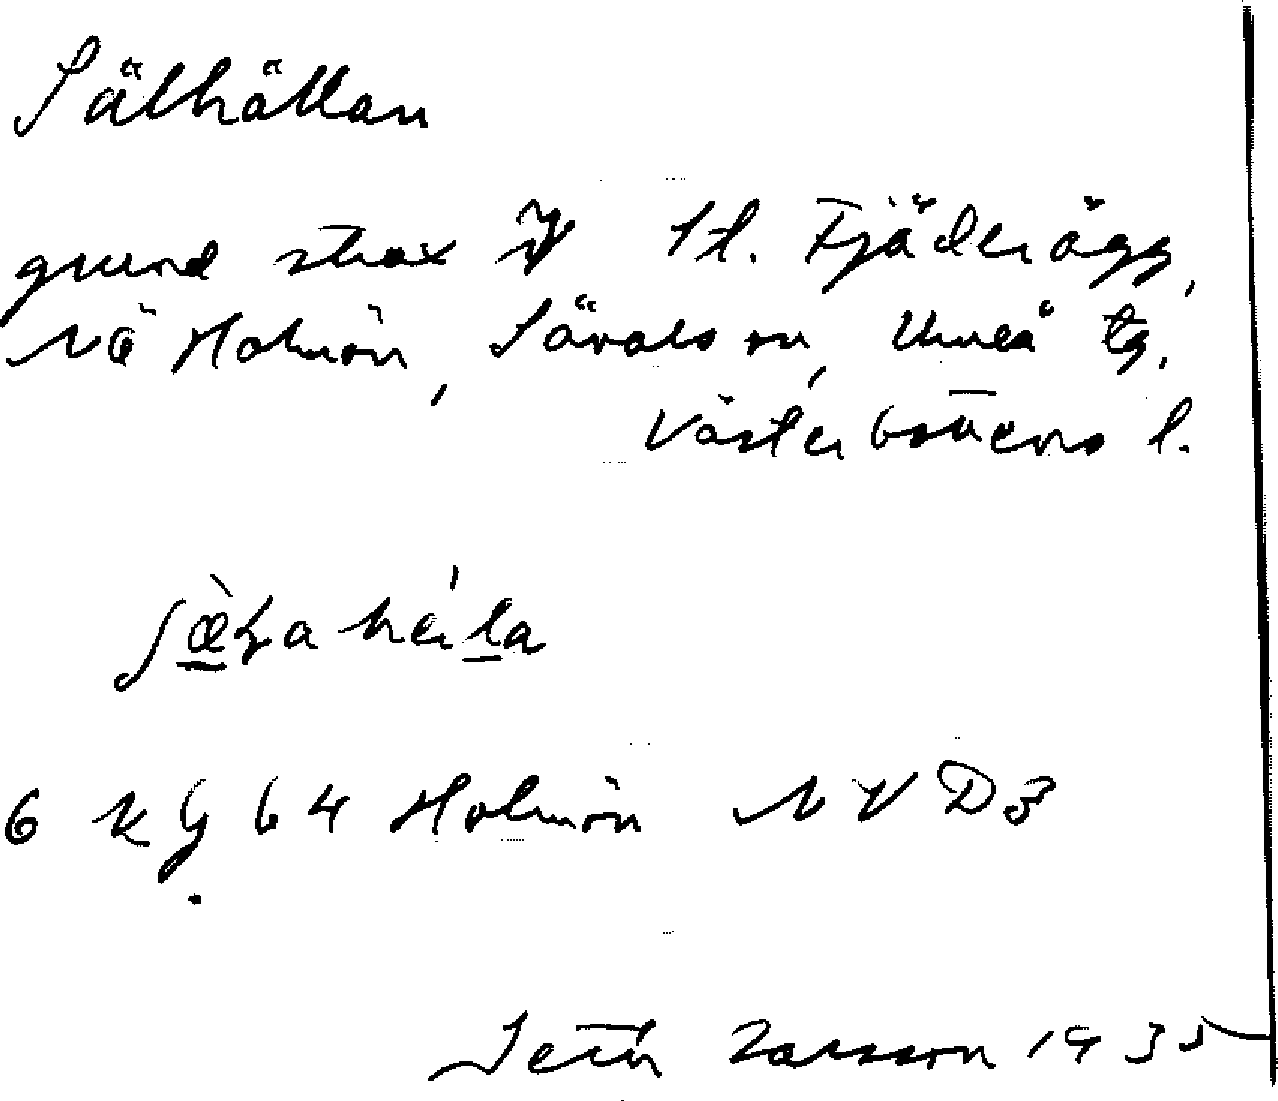 Sälhällan
grund strax V St. Fjäderägg,
NÖ Holmön, Sävars sn, Umeå tg,
Västerbottens l.
6 KG 64 Holmön NV D3
SetH Larsson 1935